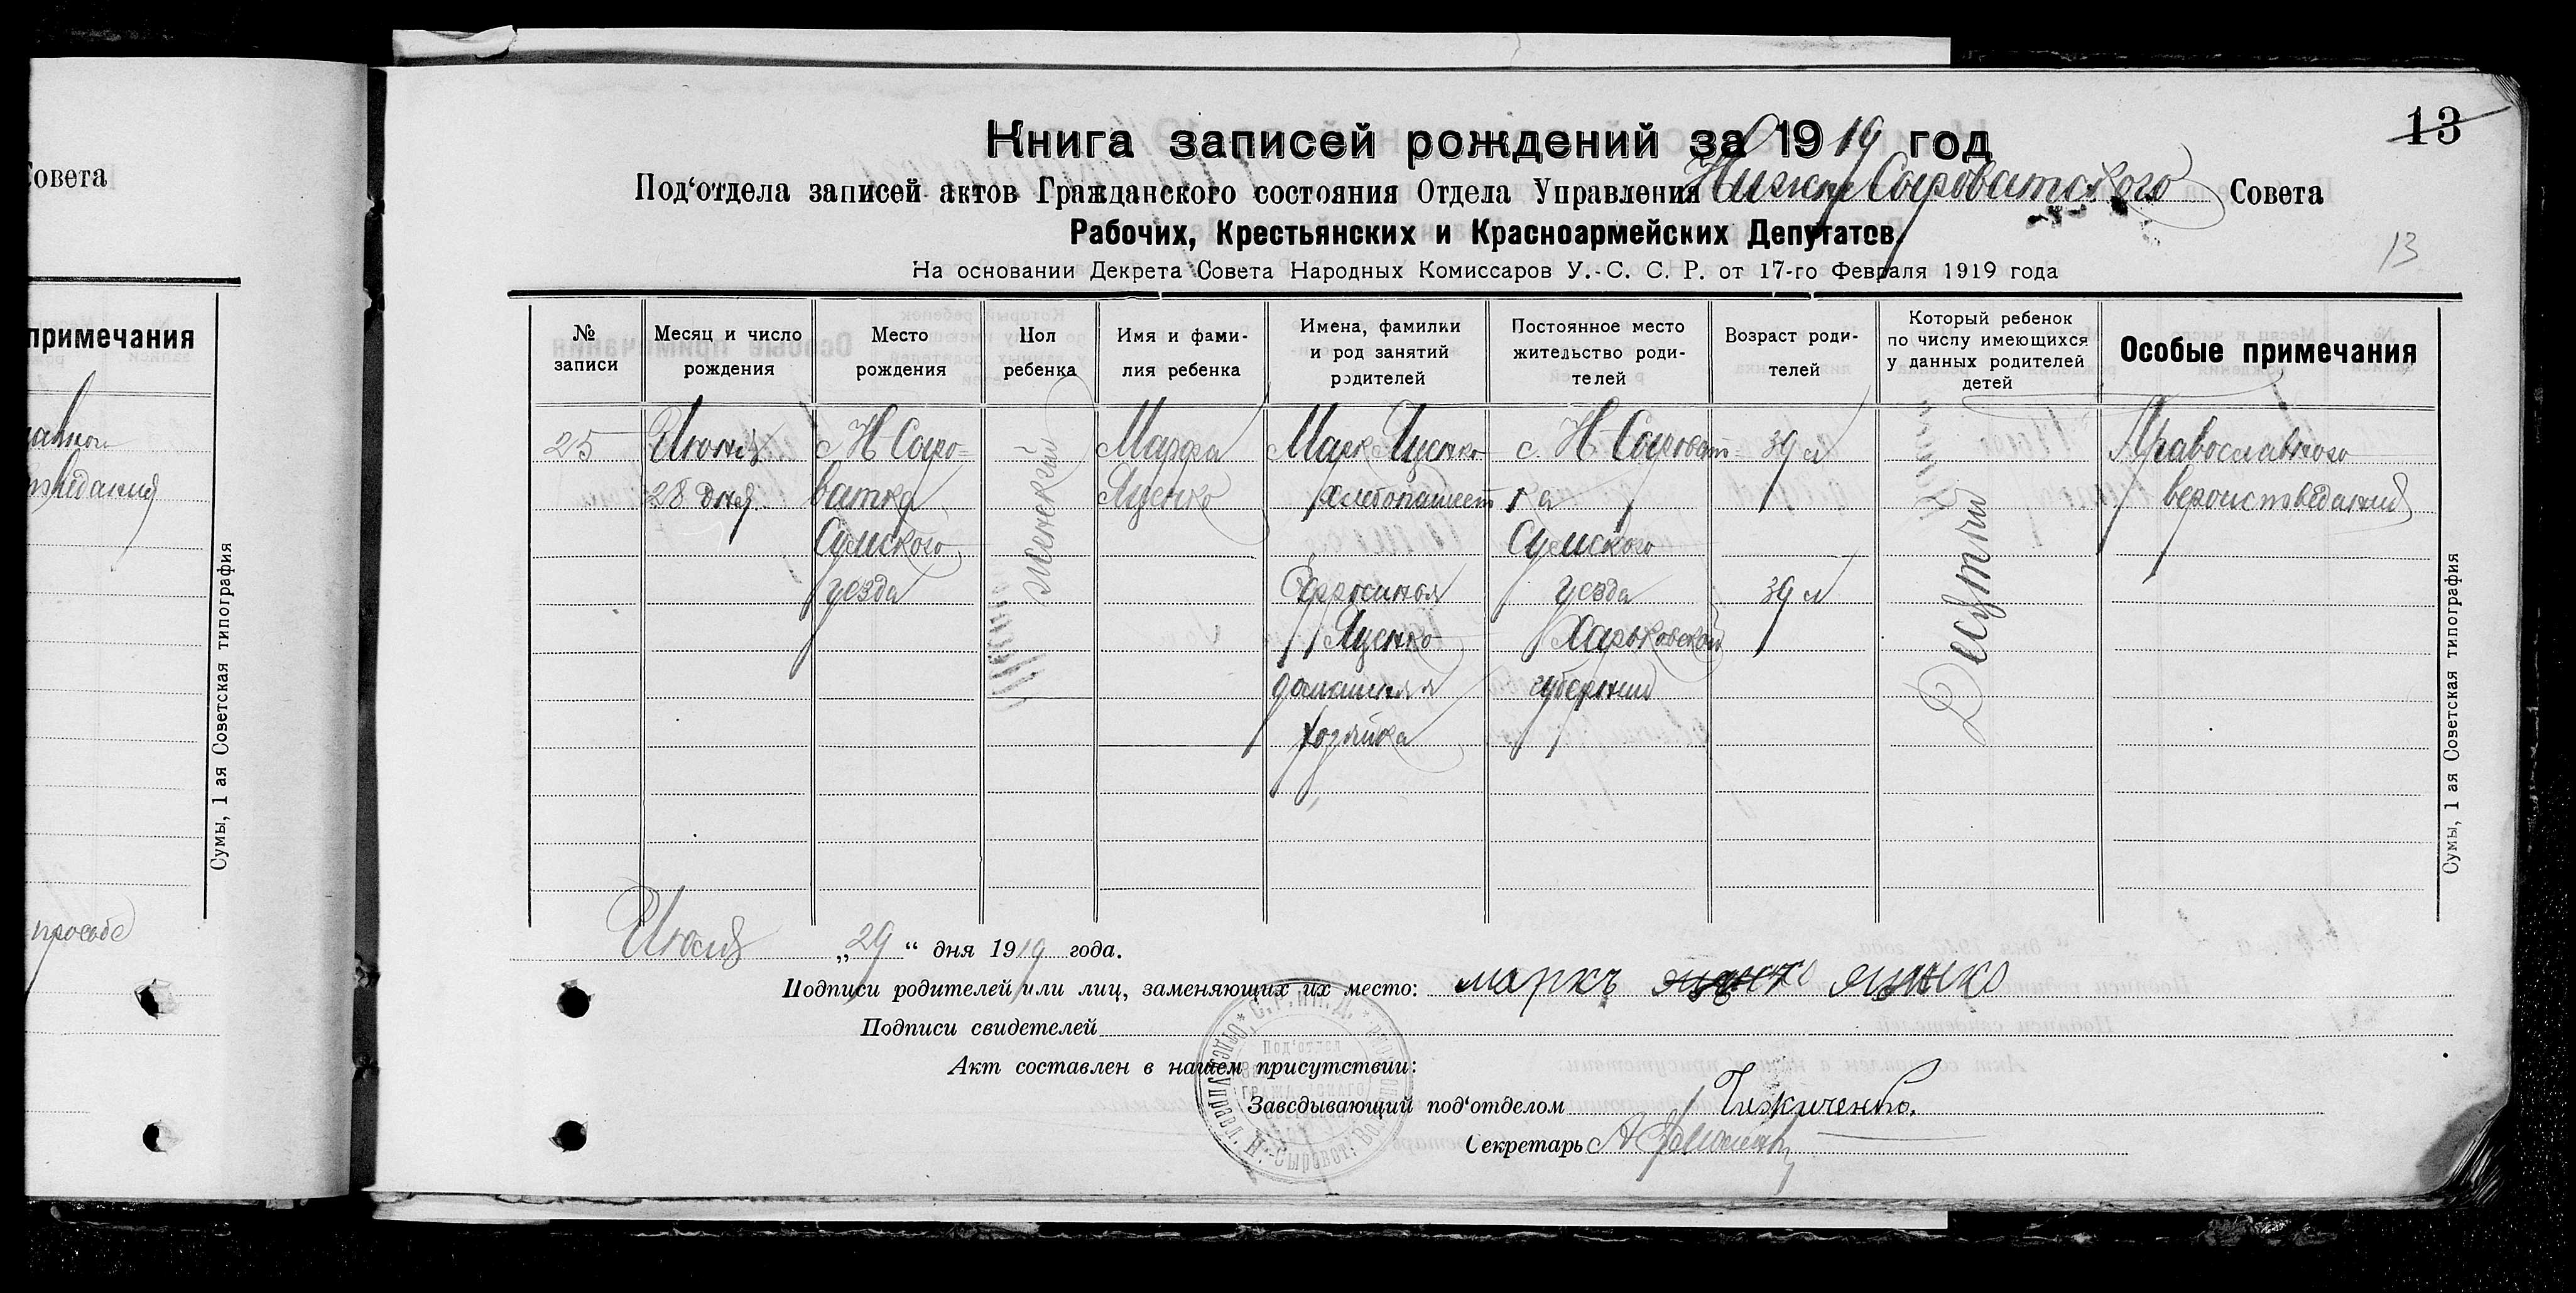 Совета
примечания
Сумы, 1 ая Советская типография
13
Книга записей рождений за 1919 год
Под‘отдела записей актов Гражданского состояния Отдела Управления Нижне Сыроватского Совета
Рабочих, Крестьянских и Красноармейских Депутатов.
13
На основании Декрета Совета Народных Комиссаров У.-С. С. Р. от 17-го Февраля 1919 года
№ записи
Месяц и число рождения
Место рождения
Пол ребенка
Имя и фамилия ребенка
Имена, фамилии и род занятий родителей
Постоянное место жительство родителей
Возраст родителей
Который ребенок по числу имеющихся у данных родителей детей
Особые примечания
25
Июня
28 дня
с Н Сыро=
ватка
Сумского
уезда
женский
Марфа
Яценко
Марк Яценко
хлебопашест
Ефросиния
Яценко
домашняя
хозяйка
с. Н. Сыроват-
ка
Сумского
уезда
Харьковской
губернии
39 л
39 л
Десятый
Православного
вероисповедания
Сумы, 1 ая Советская типография
Июля „29“ дня 1919 года.
Подписи родителей или лиц, заменяющих их место: маркъ яценко
Подписи свидетелей
Акт составлен в нашем присутствии:
Заведывающий под‘отделом
Секретарь